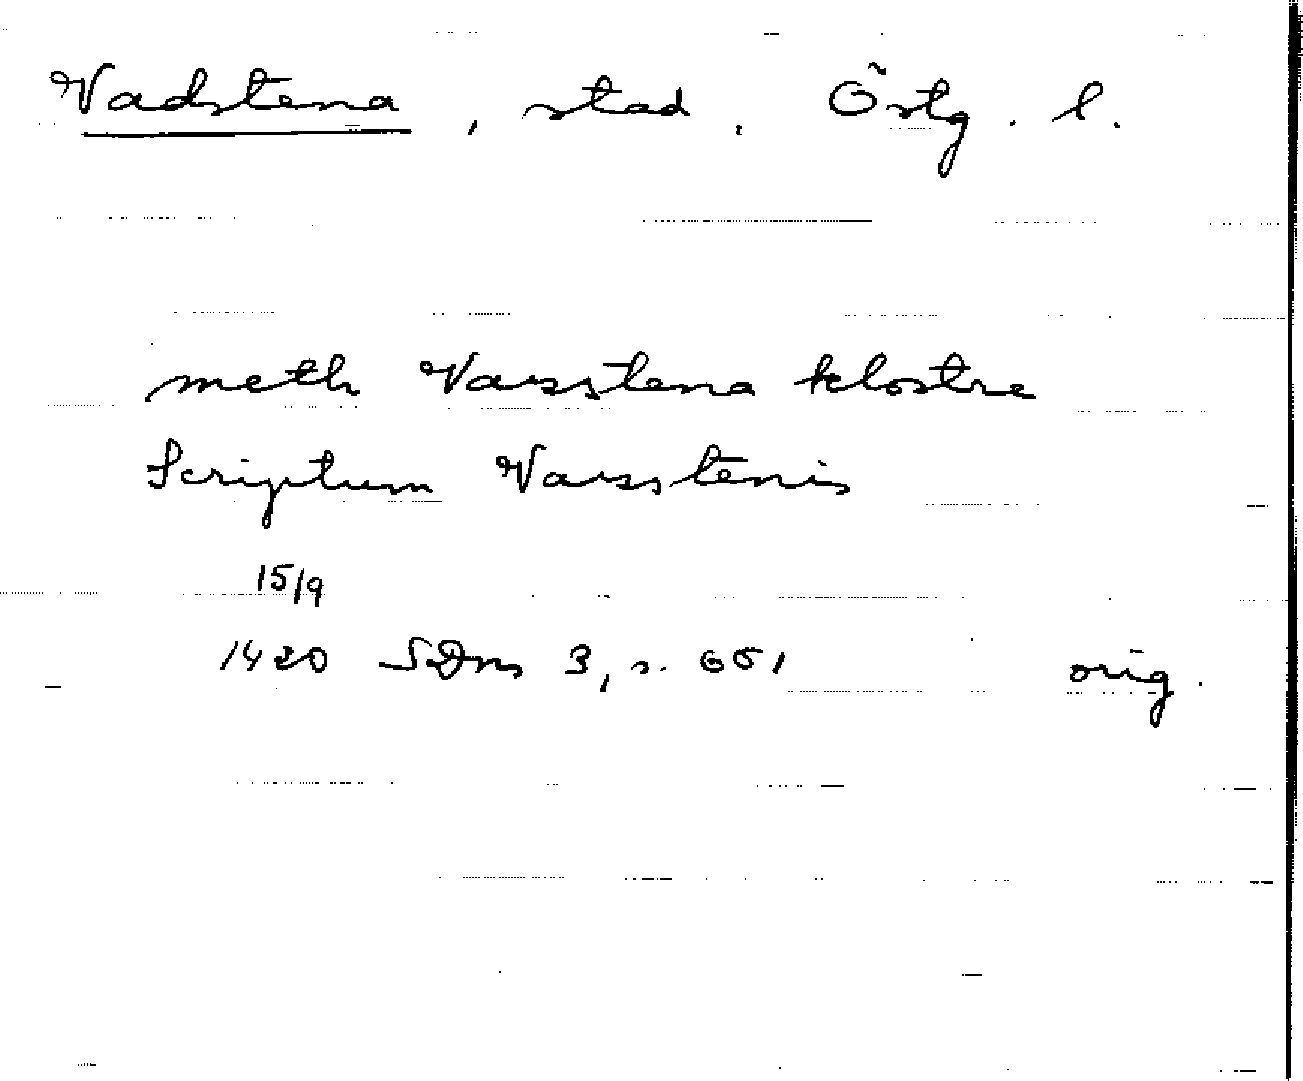 Vadstena, stad. Östg. l.
meth Vasstena klostre
Scriptum Vasstenis
15/9
1420 SDns 3, s. 651 orig.